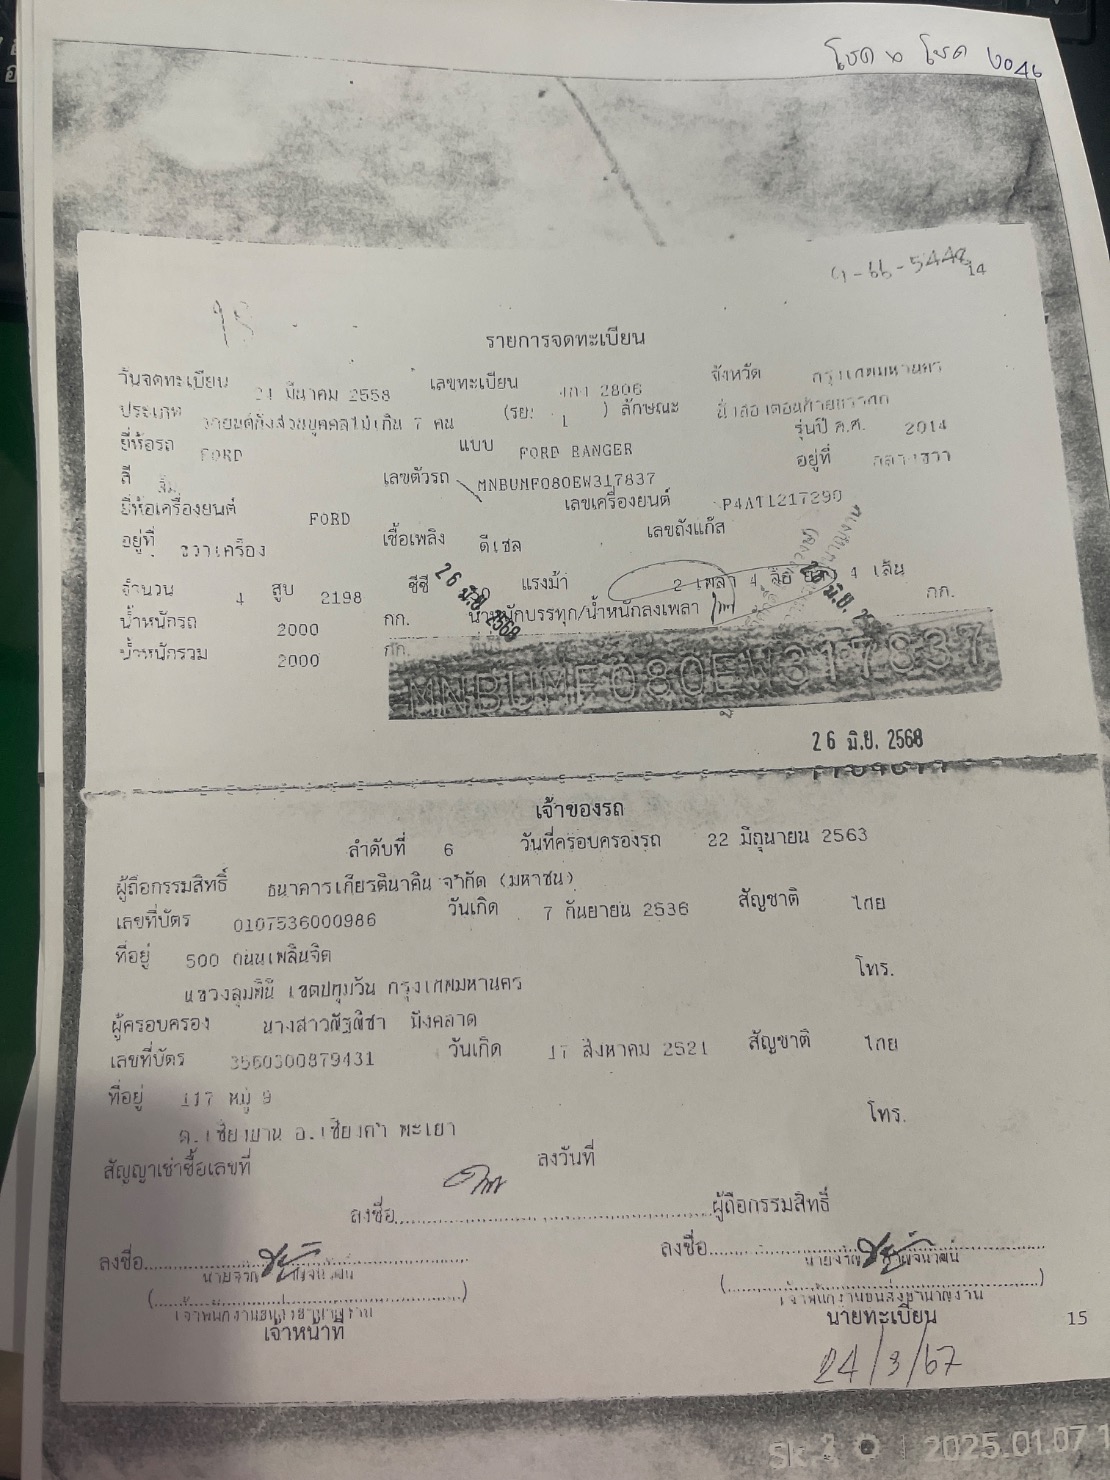 โชค ๒ โชค
รายการจดทะเบียน
14
วันจดทะเบียน 24 มีนาคม 2558 เลขทะเบียน 2806 จังหวัด กรุงเทพมหานคร
ประเภท รถยนต์นั่งส่วนบุคคลไม่เกิน 7 คน (รย. 1 ) ลักษณะ
ยี่ห้อรถ FORD แบบ FORD RANGER รุ่นปี ค.ศ. 2014
สี ส้ม เลขตัวรถ MNBUMF080EW317837 อยู่ที่
ยี่ห้อเครื่องยนต์ FORD เลขเครื่องยนต์ P4AT1217290
อยู่ที่ ขวาเครื่อง เชื้อเพลิง ดีเซล เลขถังแก๊ส
จำนวน 4 สูบ 2198 ซีซี แรงม้า 2 เพลา 4 ล้อ ยาง 4 เส้น
น้ำหนักรถ 2000 กก. น้ำหนักบรรทุก/น้ำหนักลงเพลา กก.
น้ำหนักรวม 2000 กก.
26 มิ.ย. 2568
MNBUMF080EW317837
26 มิ.ย. 2568
เจ้าของรถ
ลำดับที่ 6 วันที่ครอบครองรถ 22 มิถุนายน 2563
ผู้ถือกรรมสิทธิ์ ธนาคารเกียรตินาคิน จำกัด (มหาชน)
เลขที่บัตร 0107536000986 วันเกิด 7 กันยายน 2536 สัญชาติ ไทย
ที่อยู่ 500 ถนนเพลินจิต
แขวงลุมพินี เขตปทุมวัน กรุงเทพมหานคร โทร.
ผู้ครอบครอง นางสาวณัฐณิชา มังคลาด
เลขที่บัตร 3560300879431 วันเกิด 17 สิงหาคม 2521 สัญชาติ ไทย
ที่อยู่ 117 หมู่ 9
ต.เชียงบาน อ.เชียงคำ พะเยา โทร.
สัญญาเช่าซื้อเลขที่ ลงวันที่
ลงชื่อ ผู้ถือกรรมสิทธิ์
ลงชื่อ ลงชื่อ
เจ้าพนักงานขนส่งชำนาญงาน เจ้าพนักงานขนส่งชำนาญงาน
เจ้าหน้าที่ นายทะเบียน
15
24/3/67
2025.01.07